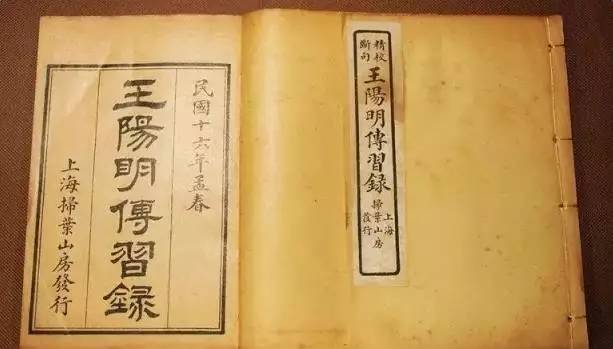 民國十六年孟春
王陽明傳習錄
上海掃葉山房發行
精校
斷句
王陽明傳習錄
上海
掃葉山房
發行